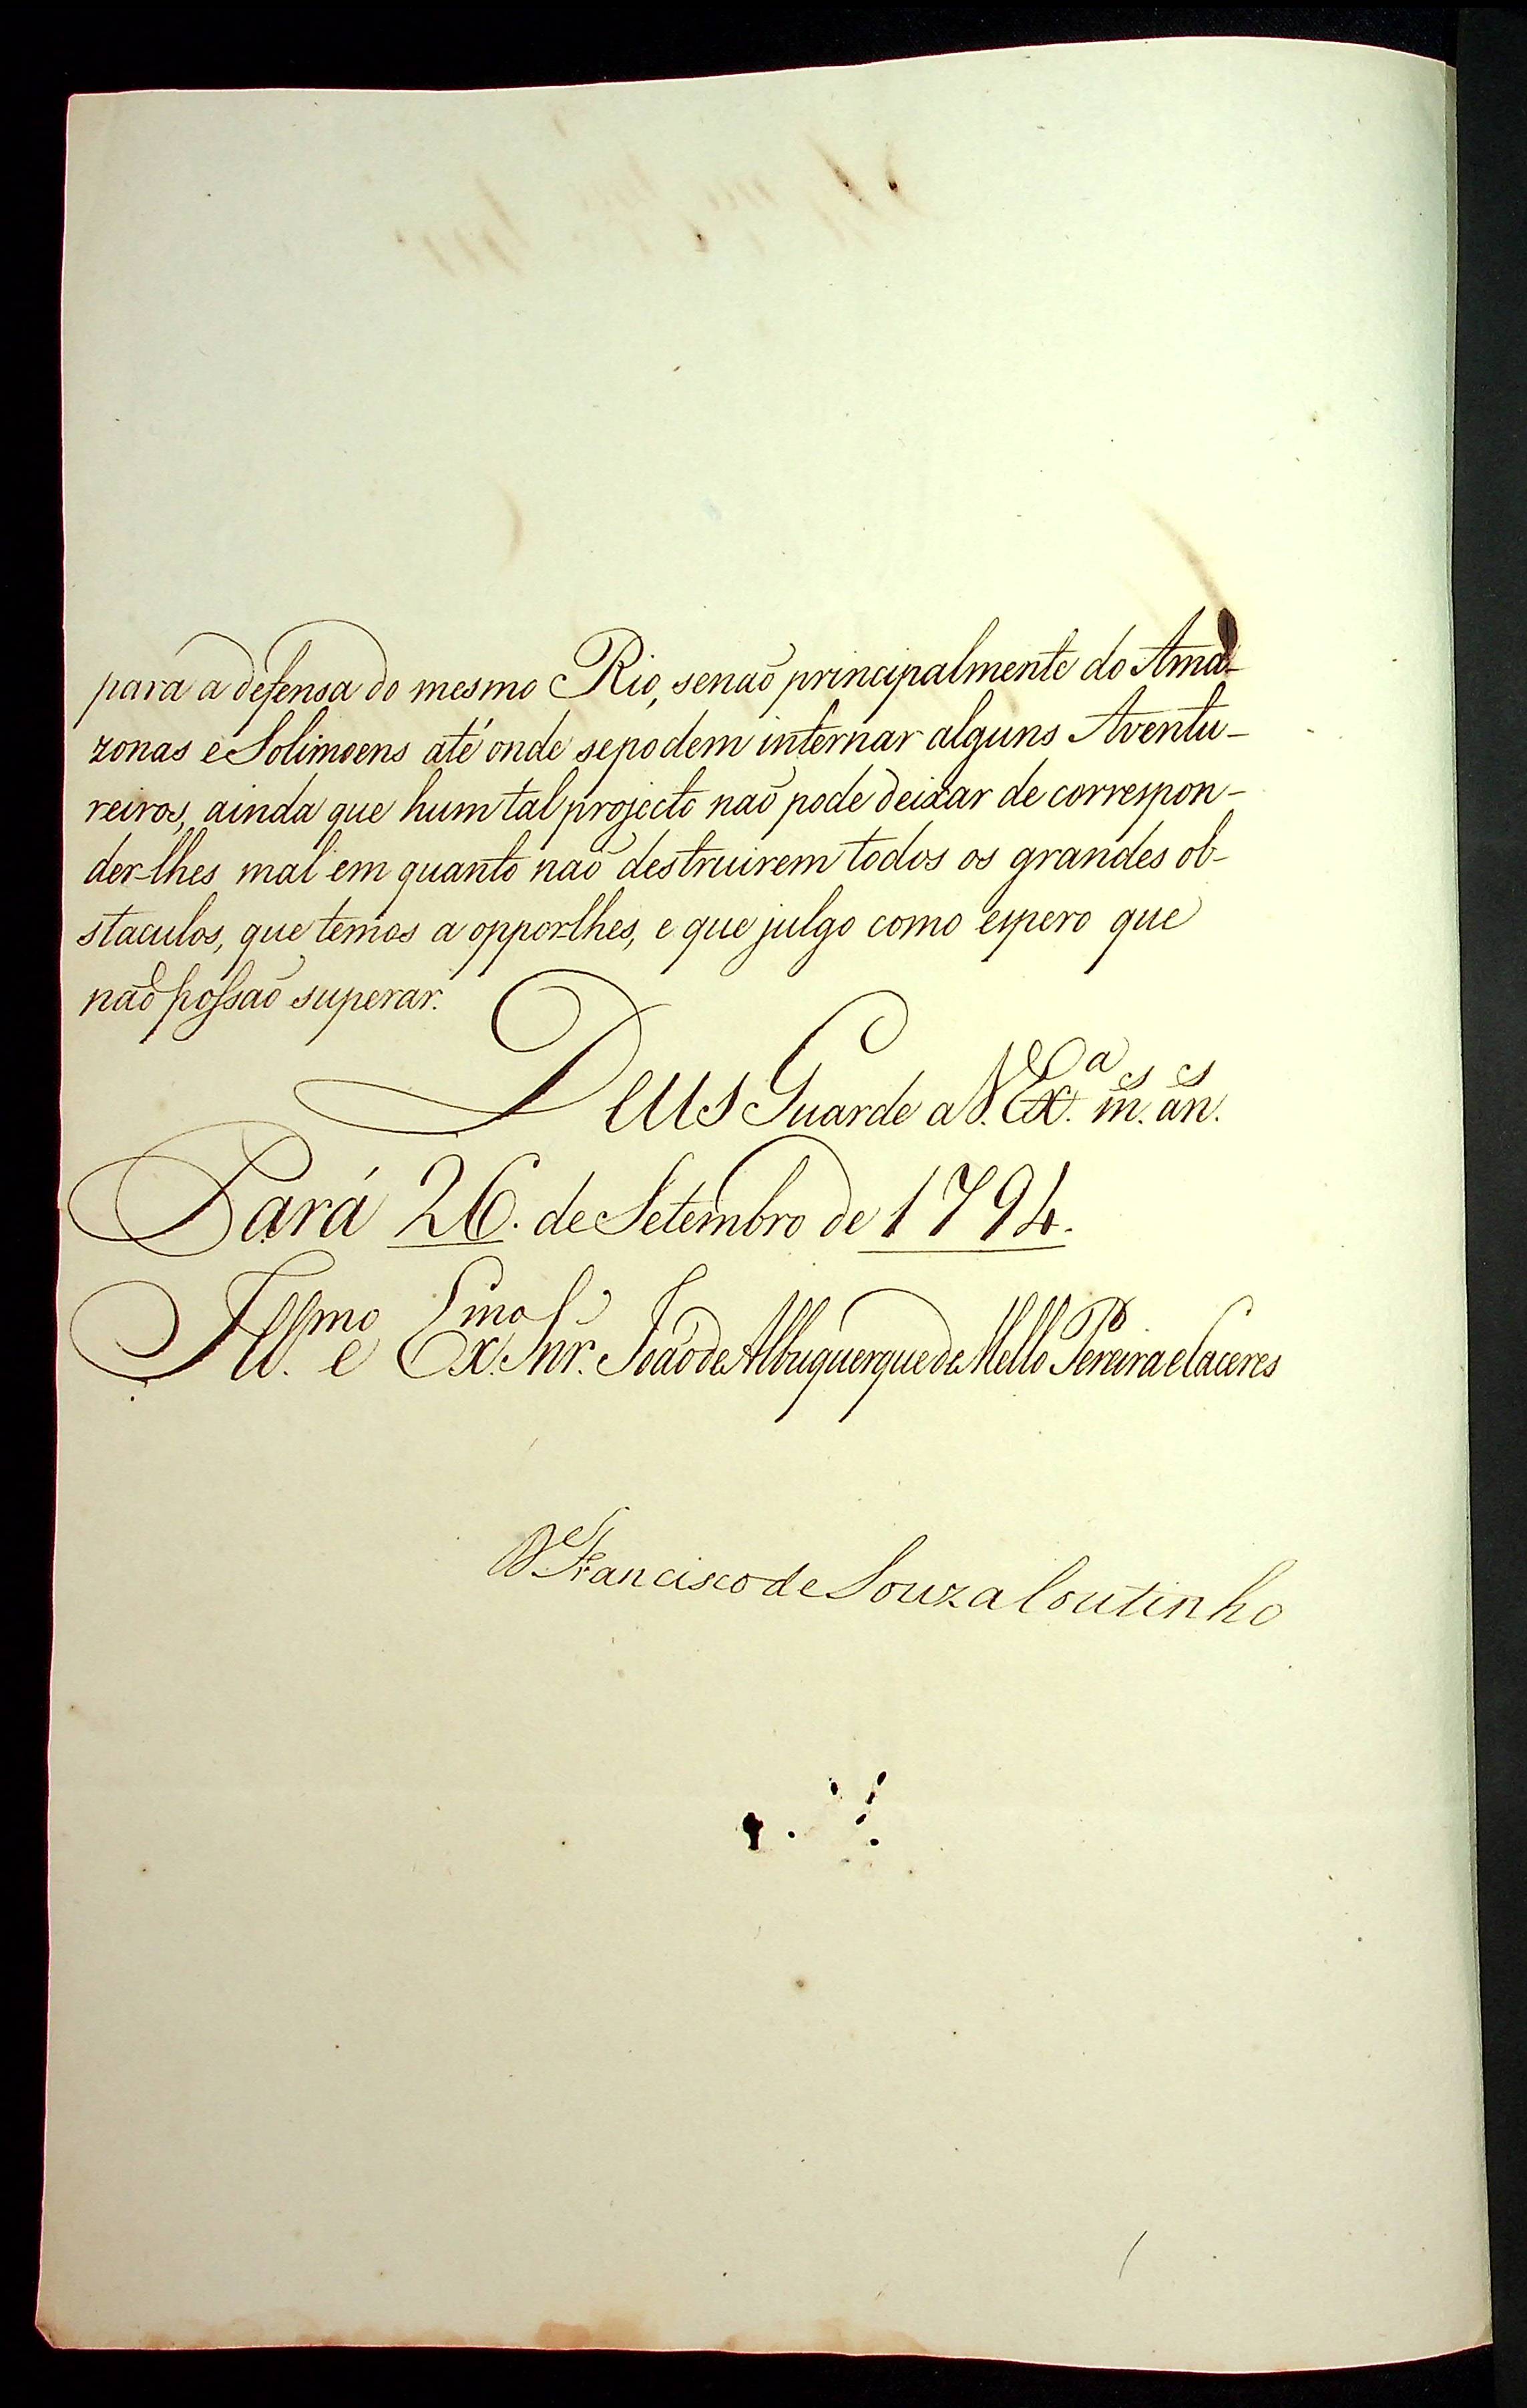 para a defensa do mesmo Rio, senaõ principalmente do Ama-
zonas e Solimoens até onde sepodem internar alguns Aventu-
reiros, ainda que hum tal projecto naõ pode deixar de correspon-
der-lhes mal em quanto naõ destruirem todos os grandes ob-
staculos, que temos a oppor-lhes, e que julgo como espero que
naõ possaõ superar.
Deus Guarde a V. Ex.ª m.s an.s
Pará 26. de Setembro de 1794.
Ill.mo e Ex.mo Snr. Joaõ de Albuquerque de Mello Pereira e Caceres
D Francisco de Souza Coutinho